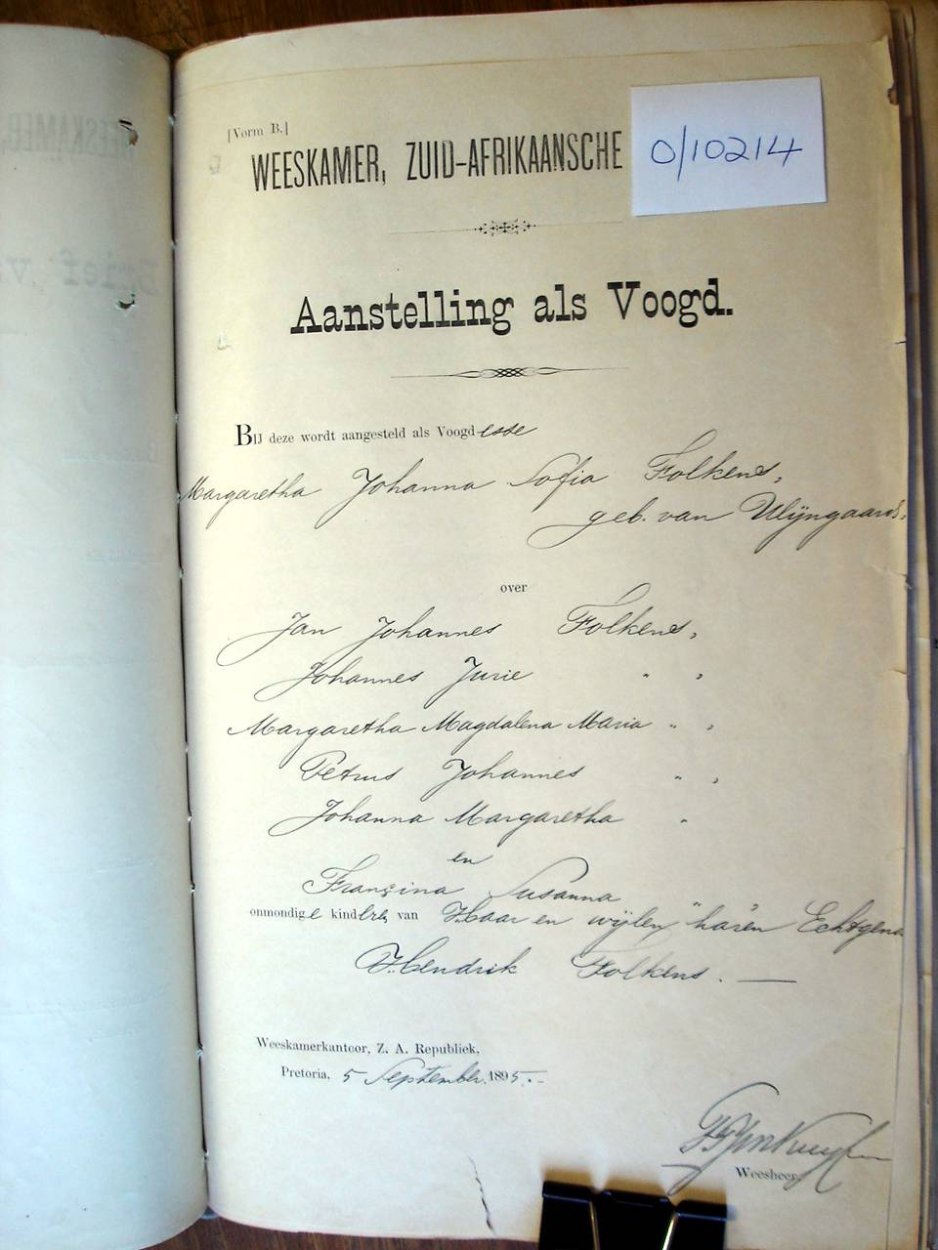 [Vorm B.]
WEESKAMER, ZUID-AFRIKAANSCHE
0/10214
Aanstelling als Voogd.
BIJ deze wordt aangesteld als Voogdesse
Margaretha Johanna Sofia Folkens,
geb. van Wijngaard,
over
Jan Johannes Folkens,
Johannes Jurie " ,
Margaretha Magdalena Maria " ,
Petrus Johannes " ,
Johanna Margaretha "
en
Françina Susanna "
onmondige kindren van Haar en wijlen haren Echtgen
Hendrik Folkens. —
Weeskamerkantoor, Z. A. Republiek,
Pretoria, 5 September 1895.
Weesheer.